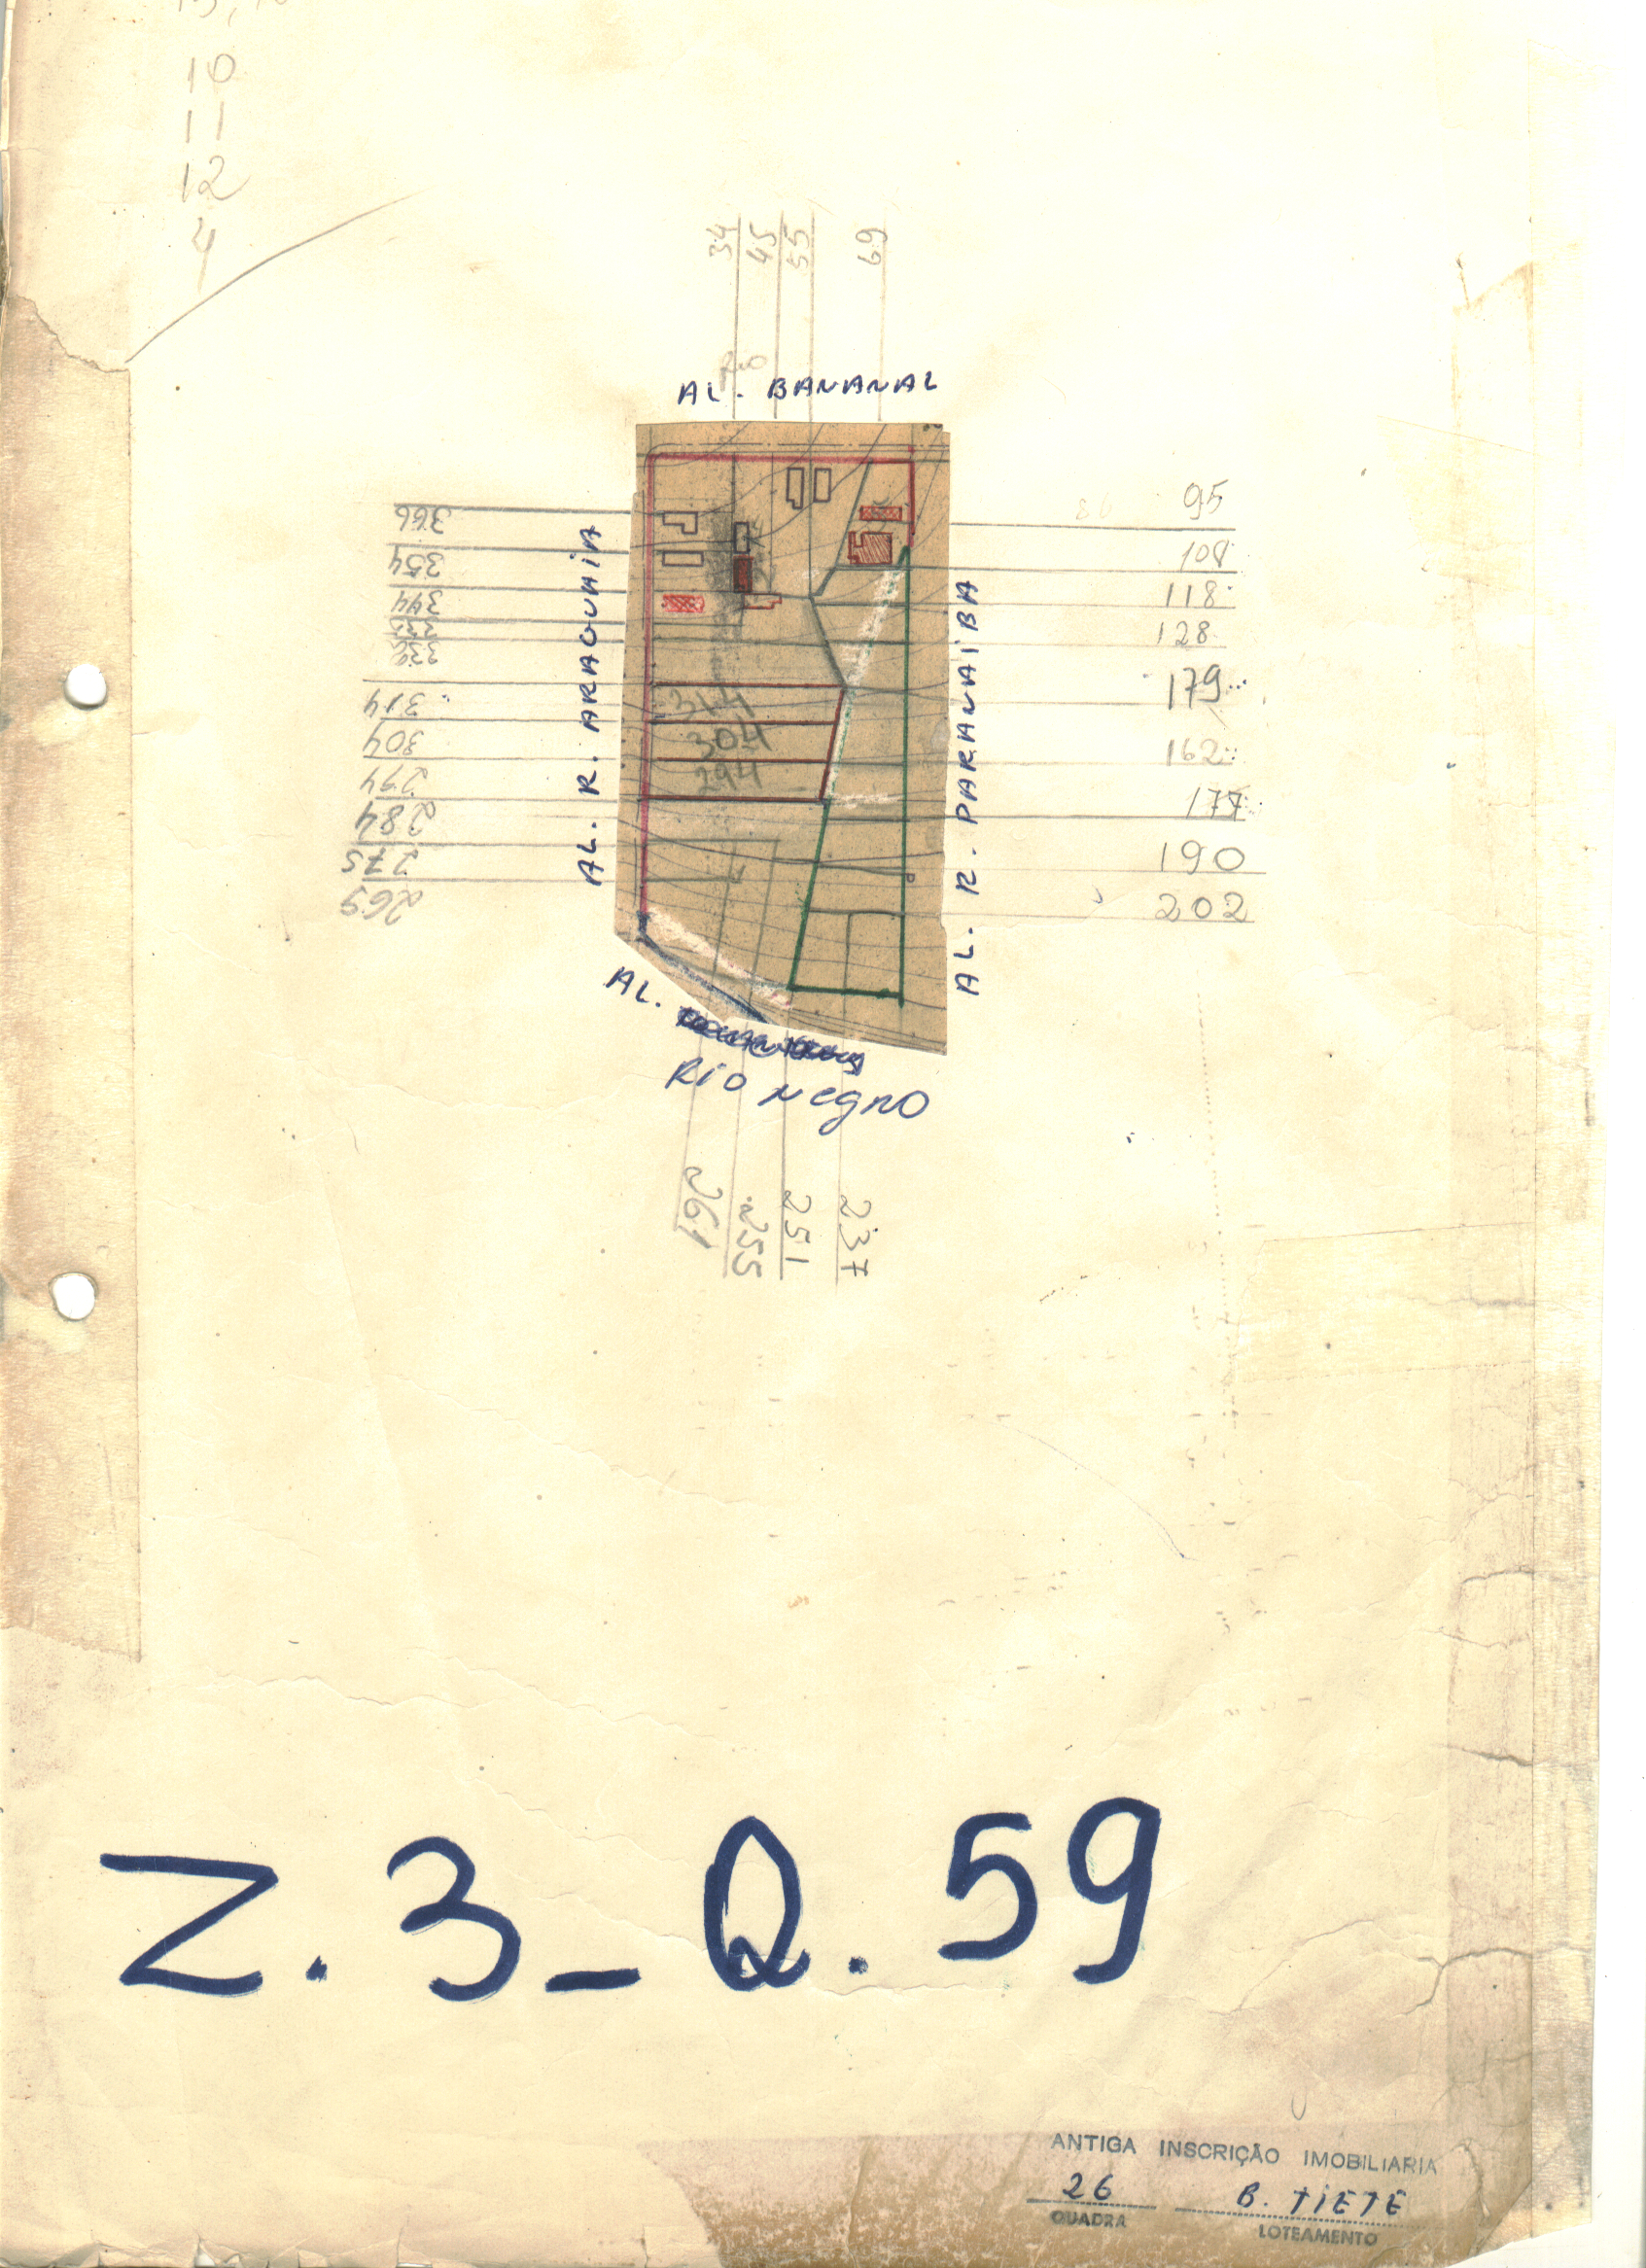 10
11
12
4
34
45
55
69
Rio
AL. BANANAL
366
354
344
332
314
304
294
284
275
269
AL. R. ARAGUAIA
314
304
294
AL. R. PARANAIBA
86
95
108
118
128
179
162
177
190
202
AL.
RIO NEGRO
261
255
251
237
Z.3_Q.59
ANTIGA INSCRIÇÃO IMOBILIARIA
26 B. TIETE
QUADRA LOTEAMENTO